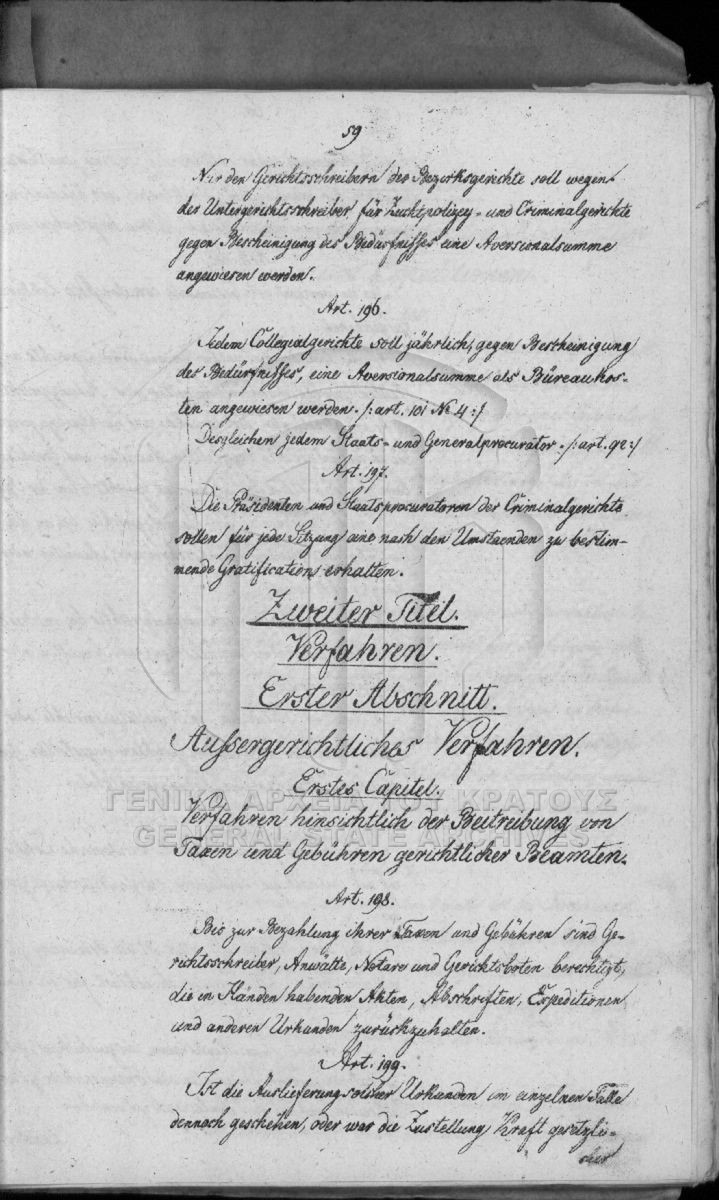 59
Nur den Gerichtsschreibern der Bezirksgerichte soll wegen
der Untergerichtsschreiber für Zuchtpolizey- und Criminalgerichte
gegen Bescheinigung des Bedürfnisses eine Aversionalsumme
angewiesen werden.
Art. 196.
Jedem Collegialgerichte soll jährlich, gegen Bescheinigung
des Bedürfnisses, eine Aversionalsumme als Büreaukos-
ten angewiesen werden. /: art. 101 No 4 :/
Desgleichen jedem Staats- und Generalprocurator. /: art. 92 :/
Art. 197.
Die Präsidenten und Staatsprocuratoren der Criminalgerichte
sollen für jede Sitzung eine nach den Umstaenden zu bestim-
mende Gratification erhalten.
Zweiter Titel.
Verfahren.
Erster Abschnitt.
Aussergerichtliches Verfahren.
Erstes Capitel.
ΓΕΝΙΚΑ ΑΡΧΕΙΑ ΤΟΥ ΚΡΑΤΟΥΣ
Verfahren hinsichtlich der Beitreibung von
GENERAL STATE ARCHIVES
Taxen und Gebühren gerichtlicher Beamten.
Art. 198.
Bis zur Bezahlung ihrer Taxen und Gebühren sind Ge-
richtsschreiber, Anwälte, Notare und Gerichtsboten berechtigt,
die in Händen habenden Akten, Abschriften, Expeditionen
und anderen Urkunden zurückzuhalten.
Art. 199.
Ist die Auslieferung solcher Urkunden im einzelnen Falle
dennoch geschehen, oder war die Zustellung Kraft gesetzli-
cher